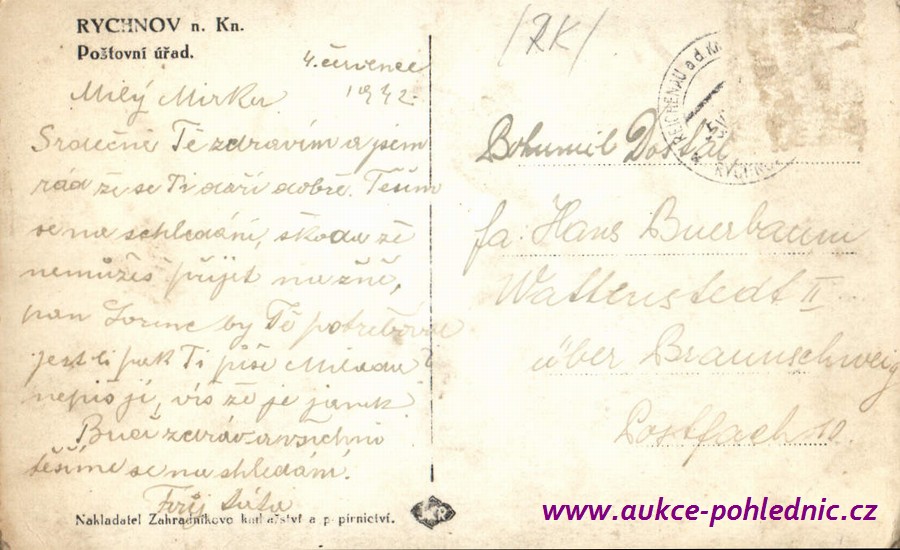 RYCHNOV n. Kn.
Poštovní úřad.
4. červenec
1942.
Milý Mirku
Srdečně Tě zdravím a jsem
rád že se Ti daří dobře. Těším
se na schledání, škoda že
nemůžeš přijet na žně,
pan Lorenc by Tě potřeboval
jestli pak Ti píše Milada?
nepiš jí, víš že je
Buď zdráv a všichni
těšíme se na shledání.
Tvůj táta
Nakladatel Zahradníkovo knihařství a papírnictví.
/RK/
REICHENAU a. d. Kn.
RYCHNO
Bohumil Dostál
fa. Hans Buerbaum
Wattenstedt II
über Braunschweig
Postfach 10.
www.aukce-pohlednic.cz